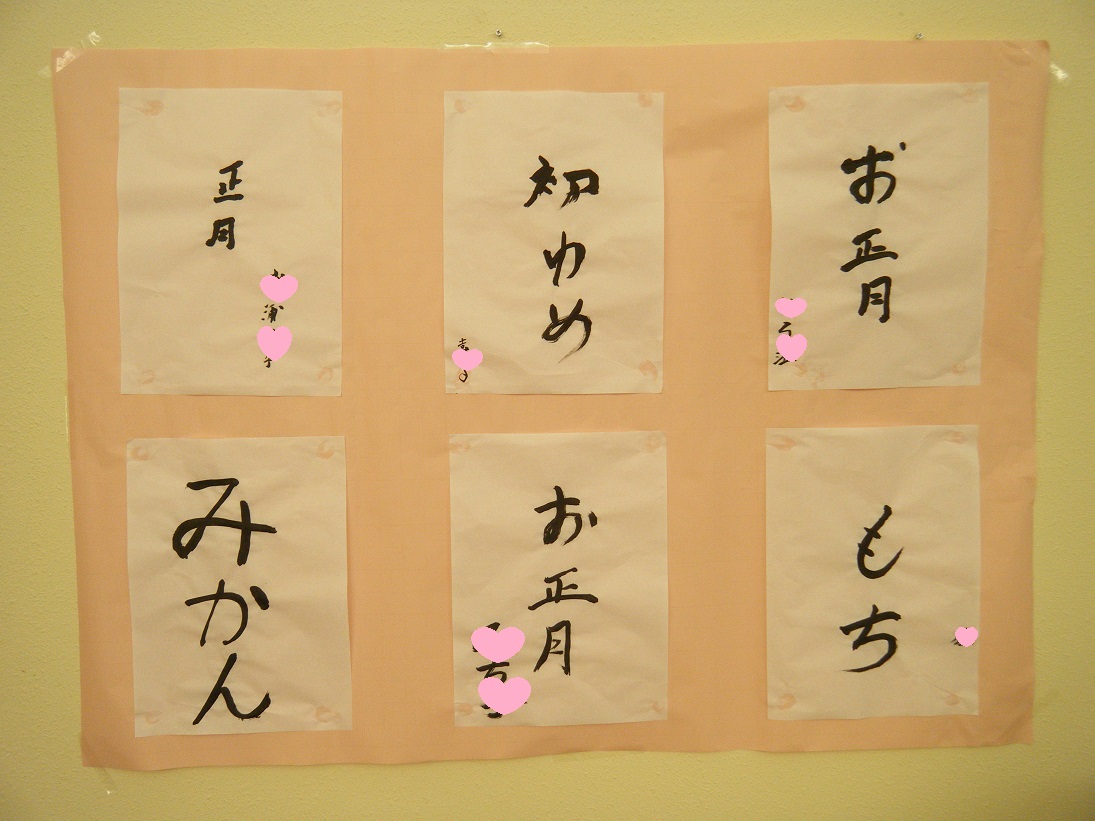 お正月
初ゆめ
正月
もち
お正月
みかん